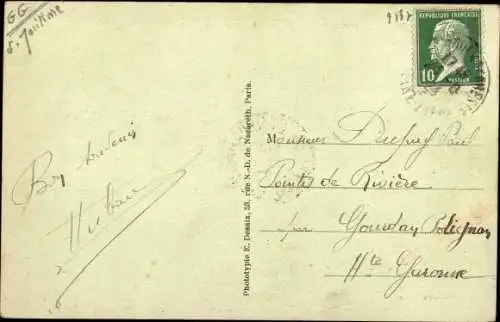 GG
S. Maritime
2187
REPUBLIQUE FRANÇAISE
10
PASTEUR
Bon souvenir
Phototypie E. Desaix, 53, rue N.-D. de Nazareth, Paris.
Monsieur Dupuy Paul
Pointis de Rivière
par Gourdan Polignan
Hte Garonne